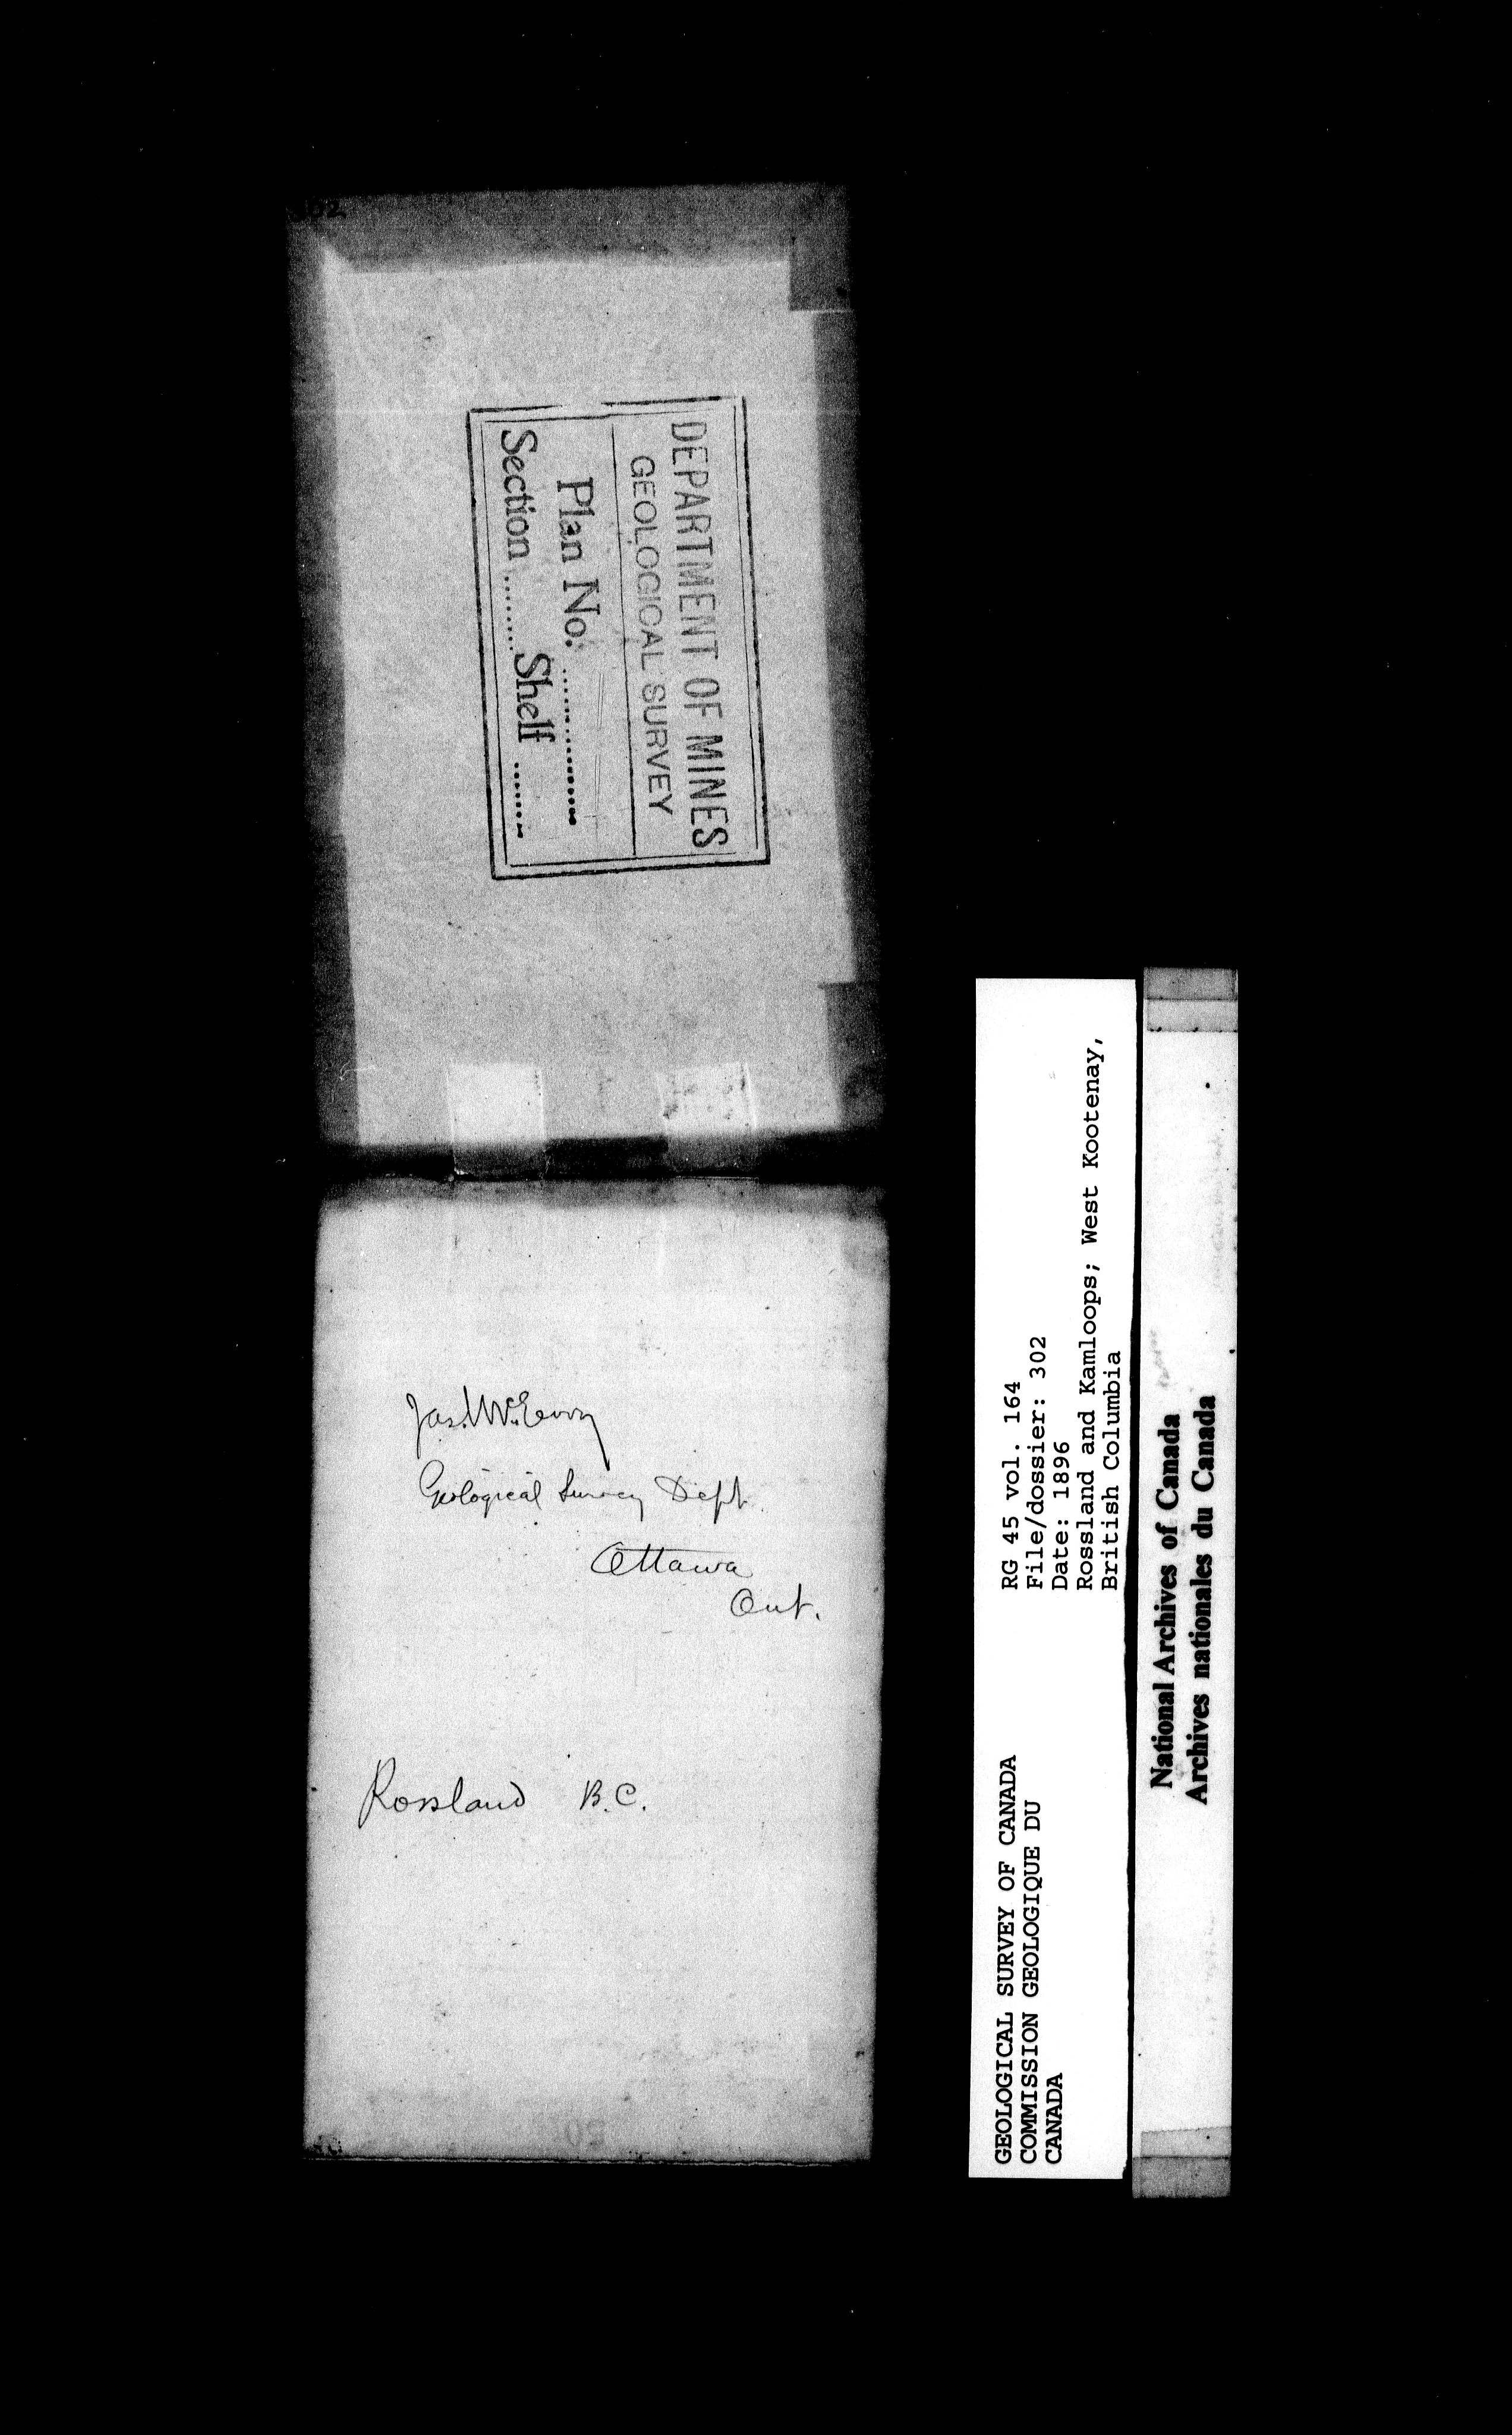 302
DEPARTMENT OF MINES
GEOLOGICAL SURVEY
Plan No. ................
Section ........ Shelf ........
Jas. McEvoy
Geological Survey Dept.
Ottawa
Ont.
Rossland B.C.
GEOLOGICAL SURVEY OF CANADA
COMMISSION GEOLOGIQUE DU
CANADA
RG 45 vol. 164
File/dossier: 302
Date: 1896
Rossland and Kamloops; West Kootenay,
British Columbia
National Archives of Canada
Archives nationales du Canada